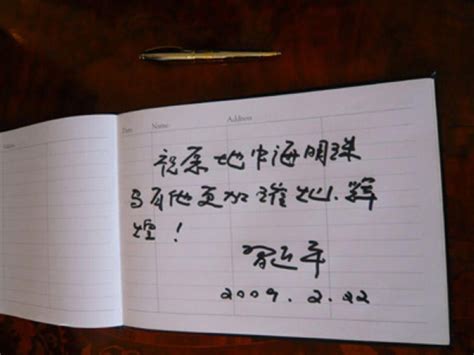 Address
Date Name Address
祝愿地中海明珠
马耳他更加璀灿、辉
煌！
習近平
2009.2.22